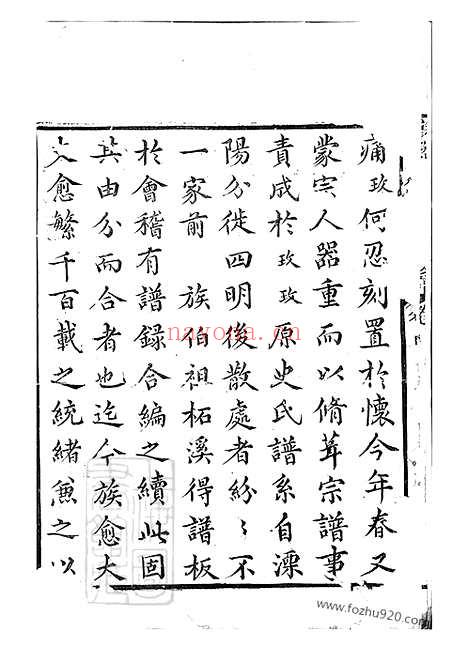 痛玫何忍刻置於懷今年春又
蒙宗人器重而以脩葺宗譜事
責成於玫玫原史氏譜系自溧
陽分徙四明後散處者紛〻不
一家前 族伯祖柘溪得譜板
於會稽有譜録合編之續此固
其由分而合者也迄今族愈大
人愈繁千百載之統緒兼之以
nayona.com
www.fozhu920.com